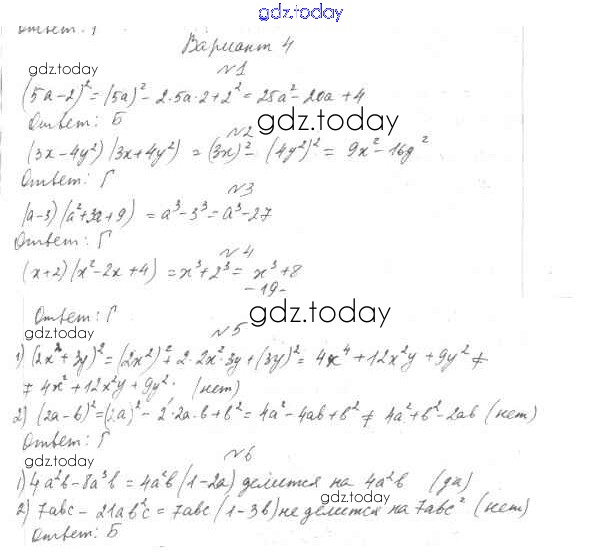 gdz.today
Ответ: Г
Вариант 4
gdz.today
№1
(5a-2)² = (5a)² - 2·5a·2+2² = 25a² - 20a + 4
Ответ: Б
gdz.today
№2
(3x-4y²)(3x+4y²) = (3x)² - (4y²)² = 9x² - 16y²
Ответ: Г
gdz.today
№3
(a-3)(a²+3a+9) = a³-3³ = a³-27
Ответ: Г
gdz.today
№4
(x+2)(x²-2x+4) = x³+2³ = x³+8
-19-
Ответ: Г
gdz.today
gdz.today
№5
1) (2x²+3y)² = (2x²)² + 2·2x²·3y+(3y)² = 4x⁴+12x²y+9y² ≠
≠ 4x²+12x²y+9y². (нет)
2) (2a-b)² = (2a)² - 2·2a·b+b² = 4a²-4ab+b² ≠ 4a²+b²-2ab (нет)
Ответ: Г
gdz.today
№6
1) 4a²b-8a³b = 4a²b(1-2a) делится на 4a²b (да)
gdz.today
2) 7abc - 21ab²c = 7abc(1-3b) не делится на 7abc² (нет)
Ответ: Б
gdz.today